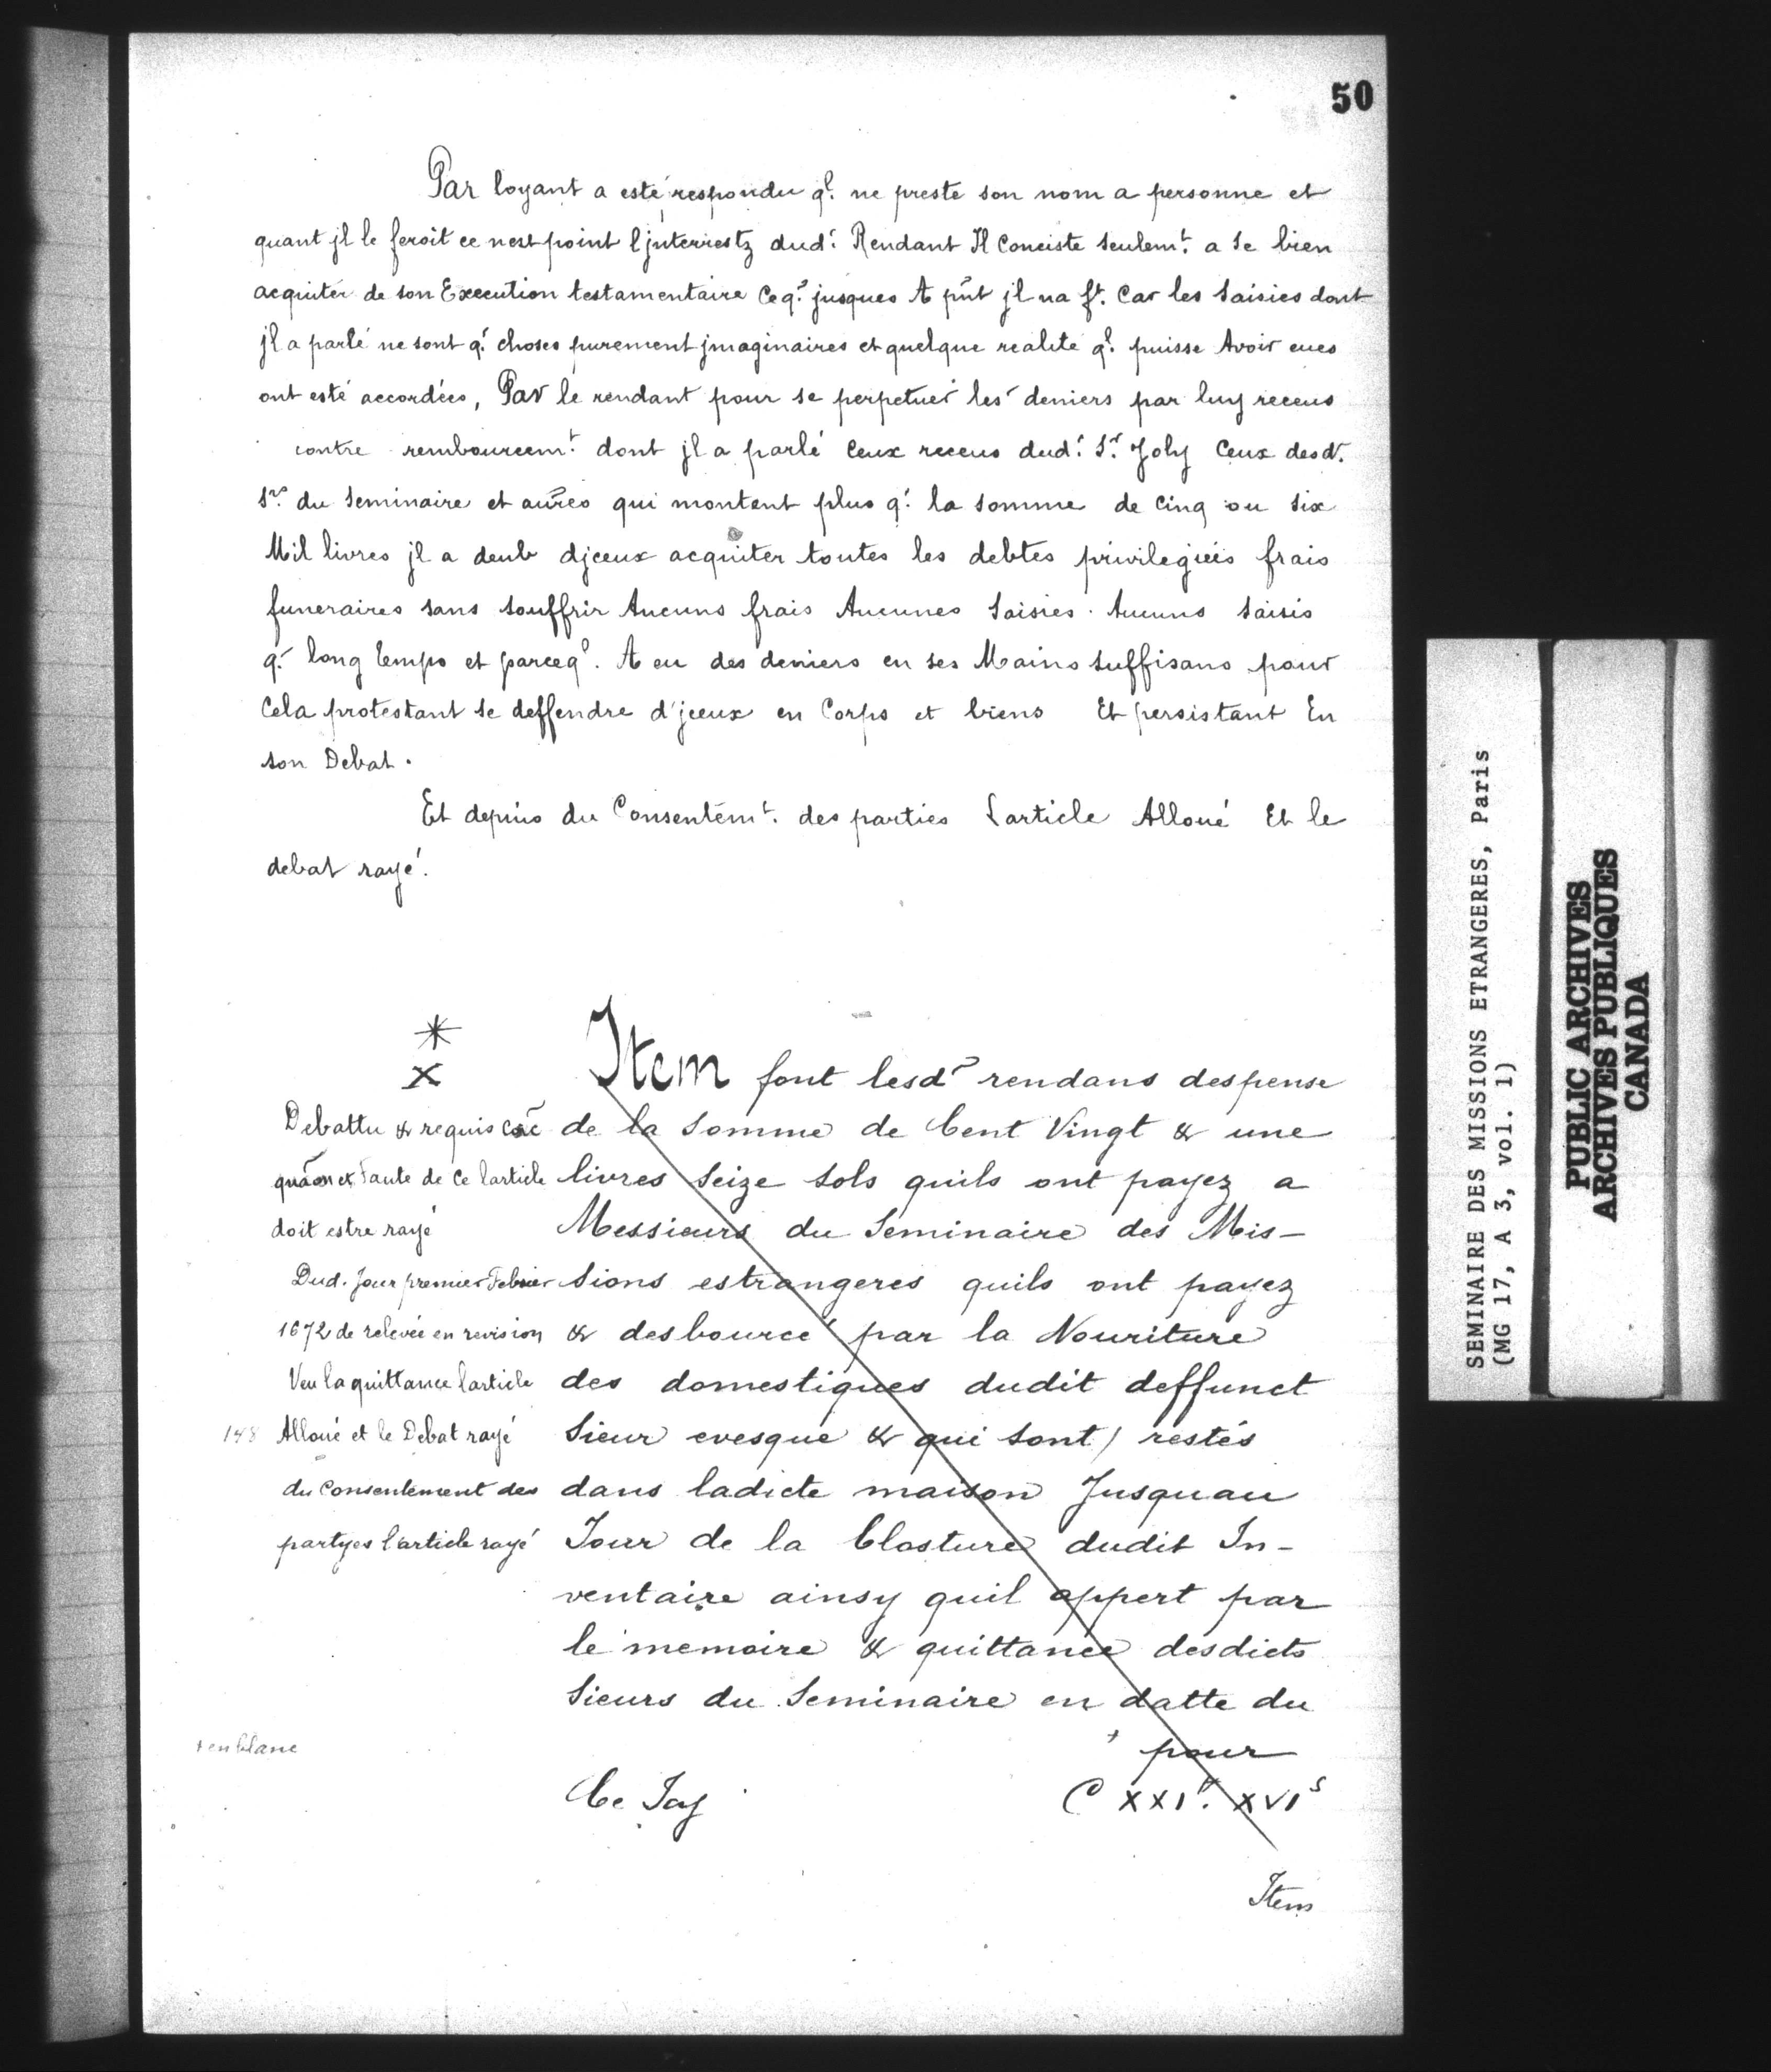 50
Par loyant a esté respondu q.l ne preste son nom a personne et
quant jl le feroit ce nest point ljnterrestz dud.t Rendant Il Conciste seulem.t a se bien
acquiter de son Execution testamentaire Ceq.l jusques A pñt jl na f.t Car les saisies dont
jl a parlé ne sont q.e choses purement jmaginaires et quelque realité q.l puisse Avoir eues
ont esté accordées, Par le rendant pour se perpetuer les deniers par luy receus
contre rembourcem.t dont jl a parlé Ceux receus dud.t S.r Joly Ceux desd.
S.rs du Seminaire et aũres qui montent plus q.e la somme de cinq ou six
Mil livres jl a deub djceux acquiter toutes les debtes privilegiées frais
funeraires sans souffrir Aucuns frais Aucunes Saisies. Aucuns saisis
q.e long temps et parceq.l A eu des deniers en ses Mains suffisans pour
Cela protestant se deffendre d'jceux en Corps et biens Et persistant En
son Debat.
Et depuis du Consentem.t des parties Larticle Alloué Et le
debat rayé.
*
x
Debattu & requis
et faute de ce larticle
doit estre rayé
Dud. Jour premier Febvrier
1672 de relevée en revision
Veu la quittance larticle
148 Alloué et le Debat rayé
du Consentement des
partyes l'article rayé
+ en blanc
Item font lesd. rendans despense
de la somme de Cent Vingt & une
livres seize sols quils ont payez a
Messieurs du Seminaire des Mis-
sions estrangeres quils ont payez
& desbource par la Nouriture
des domestiques dudit deffunct
Sieur evesque & qui sont restés
dans ladicte maison Jusquau
Jour de la Closture dudit In-
ventaire ainsy quil appert par
le memoire & quittance desdicts
Sieurs du Seminaire en datte du
+ pour
Ce Icy C XXI.tt XVI s
Item
SEMINAIRE DES MISSIONS ETRANGERES, Paris
(MG 17, A 3, vol. 1)
PUBLIC ARCHIVES
ARCHIVES PUBLIQUES
CANADA